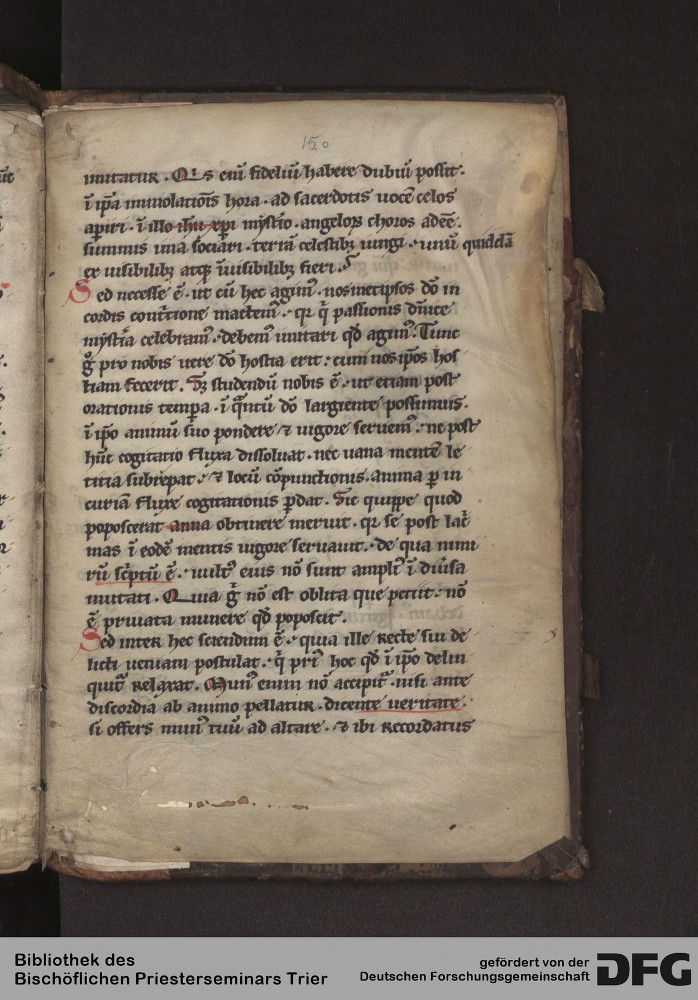 150
imitatur. Quis eni fideliū habere dubiū possit.
ī ipa immolatiōis hora. ad sacerdotis uocē celos
apiri. ī illo ihū xpi mystio. angeloꝝ choros adeē.
summis ima sociari. terrā celestibꝫ iungi. unū quiddā
ex uisibilibꝫ atqꝫ īuisibilibꝫ fieri.
Sed necesse ē. ut cū hec agimꝰ. nosmetipsos dō in
cordis cont̄tione mactemꝰ. qr q̄ passionis dn̄ice
mystia celebramꝰ. debemꝰ imitari qd̄ agimꝰ. Tunc
gͦ pro nobis uere dō hostia erit. cum nos ip̄os hos
tiam fecerit. Sꝫ studendū nobis ē. ut etiam post
orationis tempa. ī q̄ntū dō largiente possumus.
ī ip̄o animū suo pondere ⁊ uigore seruemꝰ. ne post
hūc cogitatio fluxa dissoluat. nec uana mentem le
titia subrepat. ⁊ locū cōpunctionis. anima ꝑ in
curiam fluxe cogitationis ꝑdat. Sic quippe quod
poposcerat anna obtinere meruit. qr se post lac̄
mas ī eodē mentis uigore seruauit. de qua nimi
rū sc̄ptū ē. uultꝰ eius nō sunt ampliꝰ ī diuisa
mutati. Quia gͦ nō est oblita que petiit. nō
ē priuata munere qd̄ poposcit.
Sed inter hec sciendum ē. quia ille recte sui de
licti ueniam postulat. q̄ priꝰ hoc qd̄ ī ip̄o delin
quit̄ relaxat. Munꝰ enim nō accipit̄. nisi ante
discordia ab animo pellatur. dicente ueritate.
si offers munꝰ tuū ad altare. ⁊ ibi recordatus
Bibliothek des
Bischöflichen Priesterseminars Trier
gefördert von der
Deutschen Forschungsgemeinschaft
DFG